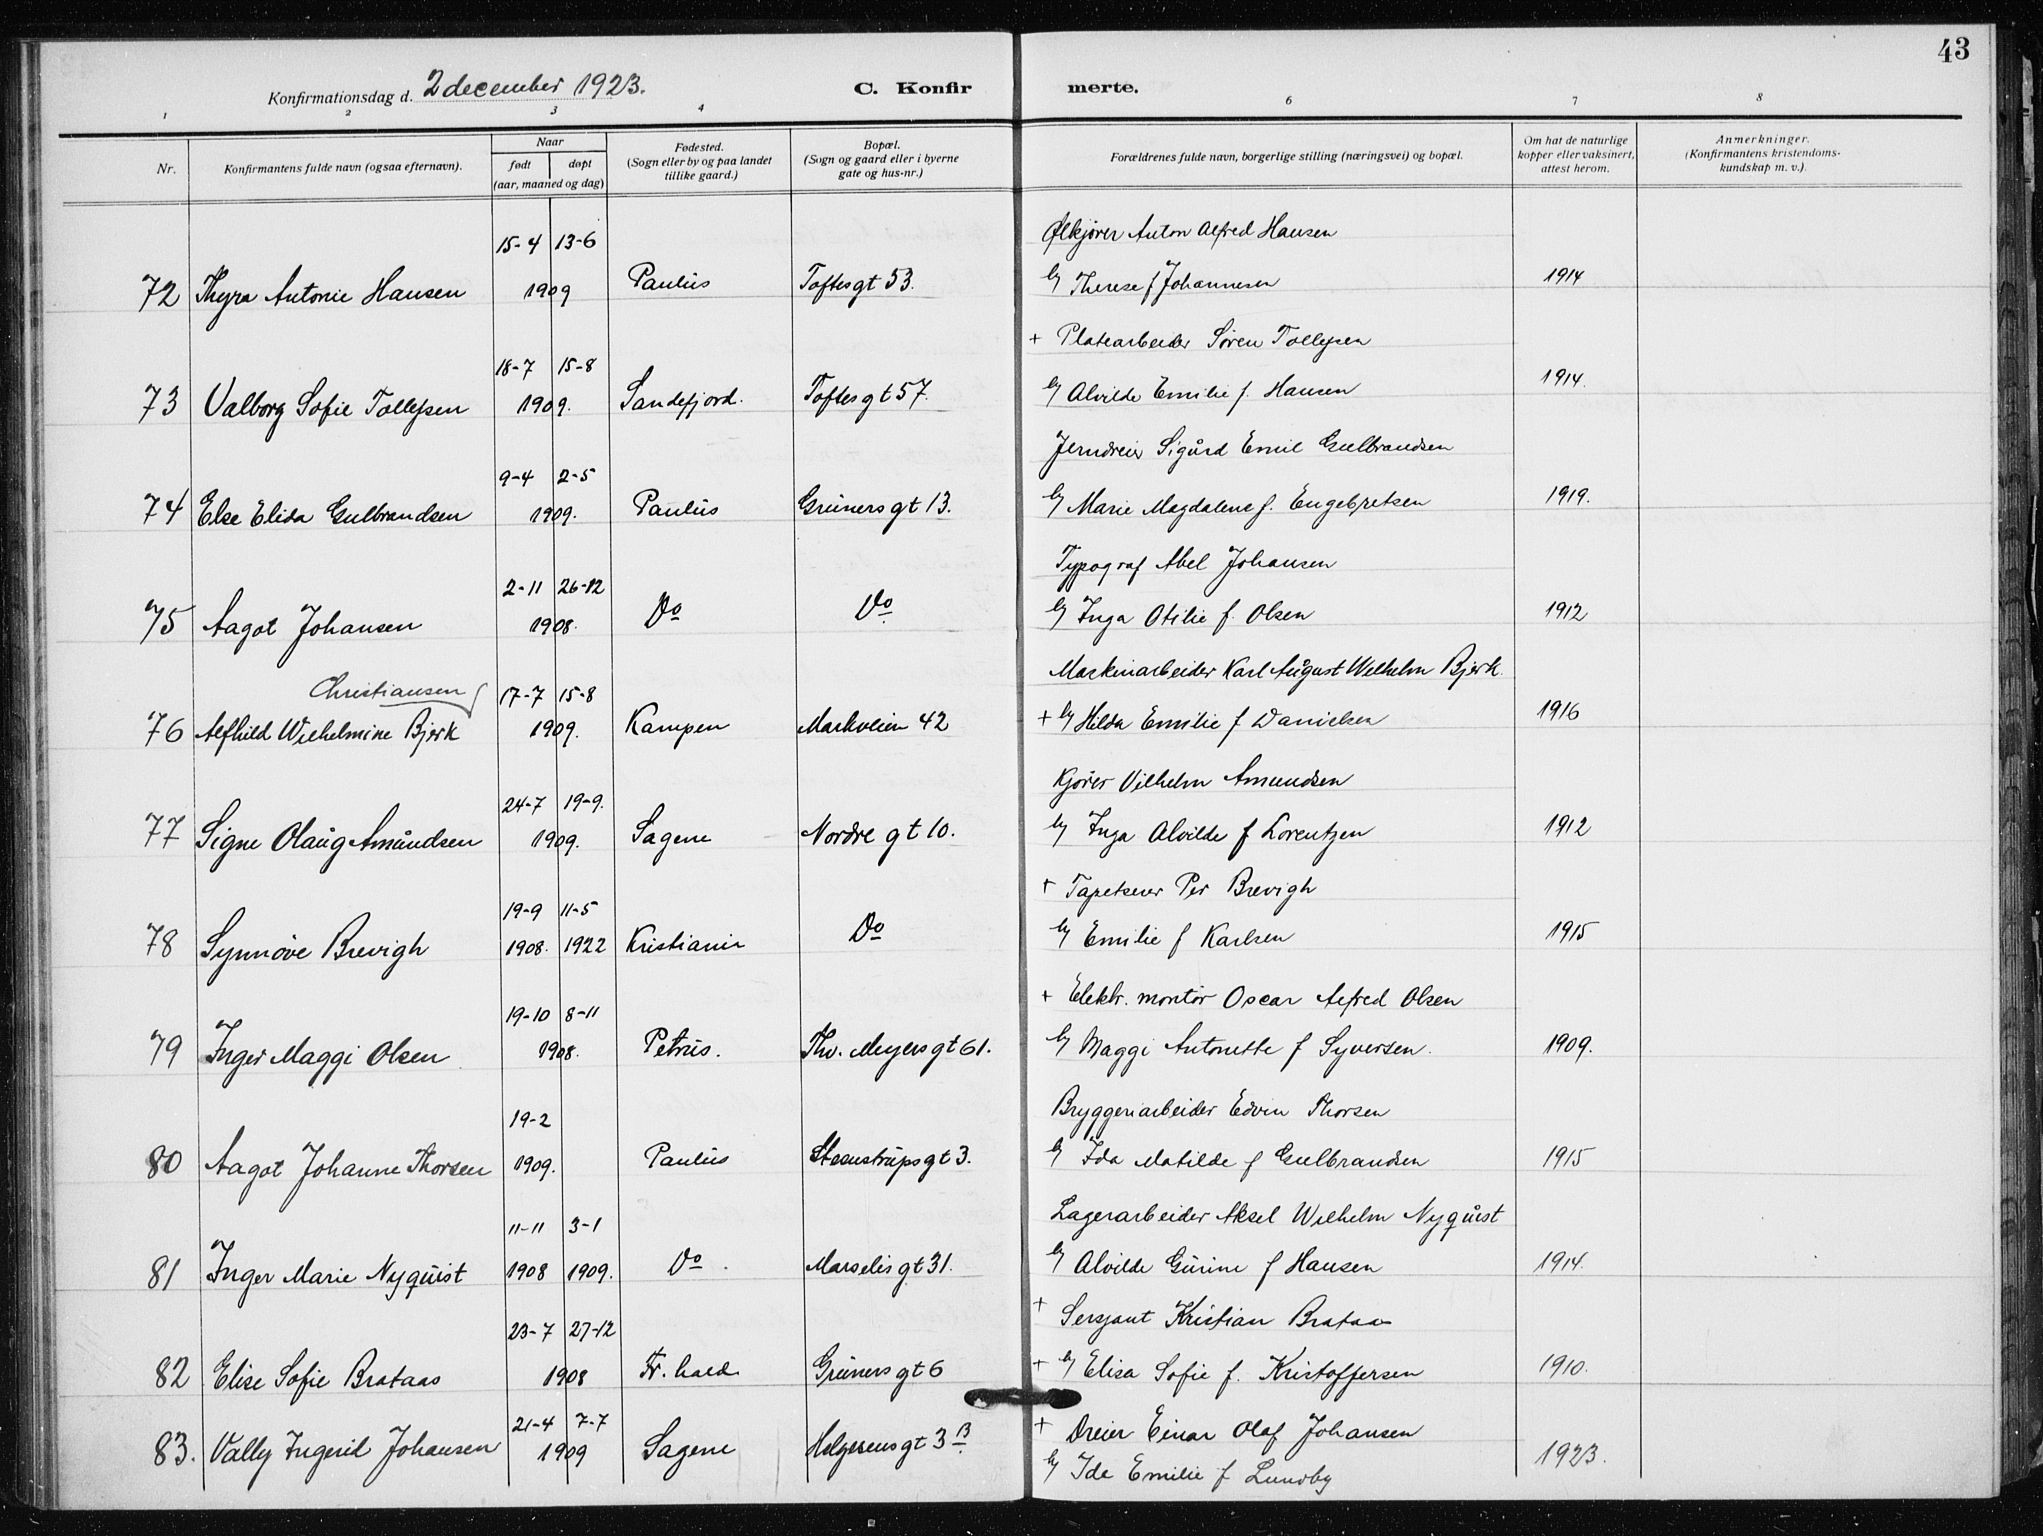 43
Konfirmationsdag d. 2 december 1923. C. Konfir merte.
1 2 3 4 6 7 8
Nr.
Konfirmantens fulde navn (ogsaa efternavn).
Naar
født døpt
(aar, maaned og dag)
Fødested.
(Sogn eller by og paa landet
tillike gaard.)
Bopæl.
(Sogn og gaard eller i byerne
gate og hus-nr.)
Forældrenes fulde navn, borgerlige stilling (næringsvei) og bopæl.
Om hat de naturlige
kopper eller vaksinert,
attest herom.
Anmerkninger.
(Konfirmantens kristendoms-
kundskap m. v.).
15-4 13-6 Ølkjører Anton Alfred Hansen
72 Thyra Antonie Hansen 1909 Paulus Toftesgt 53. og Therese f Johannesen 1914
18-7 15-8 + Platearbeider Søren Tollefsen
73 Valborg Sofie Tollefsen 1909. Sandefjord. Toftesgt 57. og Alvilde Emilie f. Hansen 1914.
9-4 2-5 Jerndreier Sigurd Emil Gulbrandsen
74 Else Elida Gulbrandsen 1909. Paulus Grünersgt 13. og Marie Magdalene f. Engebretsen 1919.
2-11 26-12 Typograf Abel Johansen
75 Aagot Johansen 1908. Do Do og Inga Otilie f. Olsen 1912
Christiansen 17-7 15-8 Maskinarbeider Karl August Wilhelm Bjerk.
76 Alfhild Wilhelmine Bjerk 1909. Kampen Markveien 42 + og Hilda Emilie f Danielsen 1916
24-7 19-9. Kjører Vilhelm Amundsen
77 Signe Olaug Amundsen 1909. Sagene Nordre gt 10. og Inga Alvilde f Lorentzen 1912
19-9 11-5 + Tapetserer Per Brevigh
78 Synnøve Brevigh 1908. 1922 Kristiania Do og Emilie f Karlsen 1915
19-10 8-11 + Elektr. montør Oscar Alfred Olsen
79 Inger Maggi Olsen 1908. Petrus. Thv. Meyersgt 61. og Maggi Antonette f Syversen. 1909.
19-2 Bryggeriarbeider Edvin Thorsen
80 Aagot Johanne Thorsen 1909. Paulus Steenstrupsgt 3. og Ida Matilde f Gulbrandsen 1915
11-11 3-1 Lagerarbeider Aksel Wilhelm Nyquist
81 Inger Marie Nyquist 1908 1909. Do. Marselisgt 31. og Alvilde Gurine f Hansen 1914.
23-7 27-12 + Sersjant Kristian Brataas
82 Elise Sofie Brataas 1908 Fr. hald Grünersgt 6 + og Elisa Sofie f. Kristoffersen 1910.
21-4 7-7 + Dreier Einar Olaf Johansen
83. Vally Ingerid Johansen 1909 Sagene Helgesensgt 3 B og Ida Emilie f Lundby 1923.